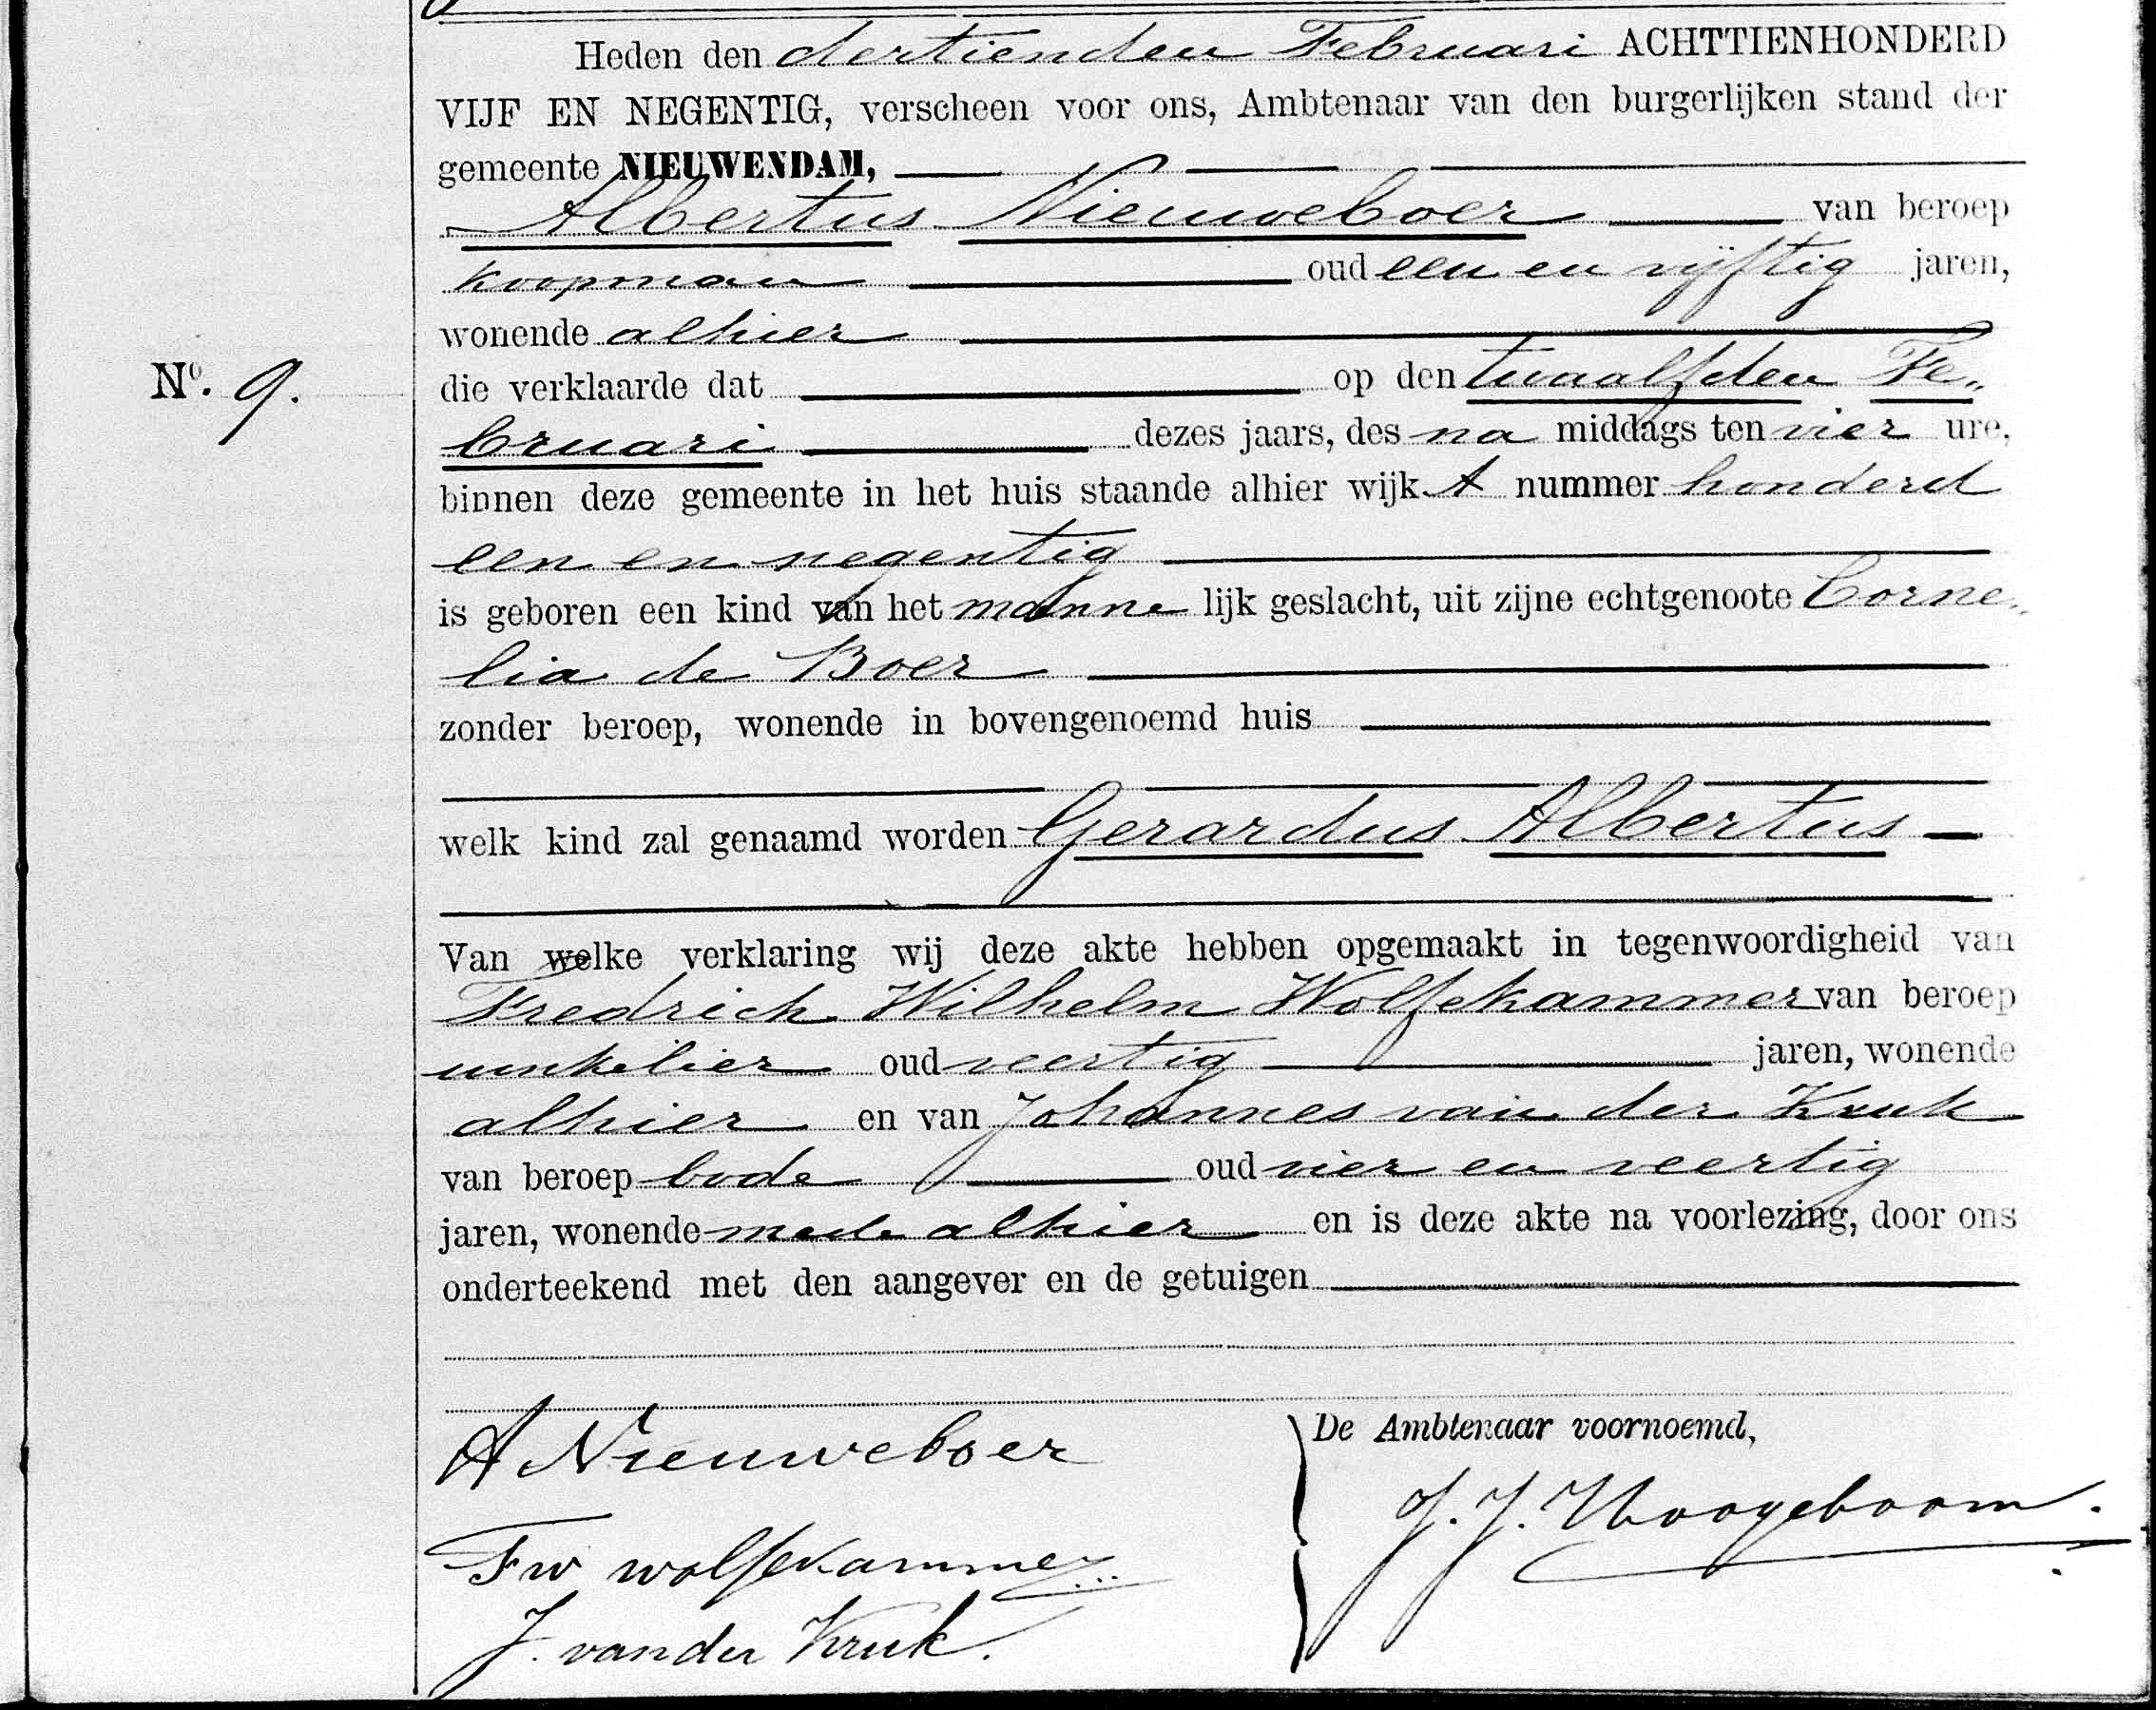 Heden den dertienden Februari ACHTTIENHONDERD
VIJF EN NEGENTIG, verscheen voor ons, Ambtenaar van den burgerlijken stand der
gemeente NIEUWENDAM,
Albertus Nieuweboer van beroep
koopman oud een en vijftig jaren,
wonende alhier
die verklaarde dat op den twaalfden Fe„
No. 9.
bruari dezes jaars, des na middags ten vier ure,
binnen deze gemeente in het huis staande alhier wijk A nummer honderd
een en negentig
is geboren een kind van het manne lijk geslacht, uit zijne echtgenoote Corne„
lia de Boer
zonder beroep, wonende in bovengenoemd huis
welk kind zal genaamd worden Gerardus Albertus
Van welke verklaring wij deze akte hebben opgemaakt in tegenwoordigheid van
Fredrich Wilhelm Wolfekammer van beroep
winkelier oud veertig jaren, wonende
alhier en van Johannes van der Kruk
van beroep bode oud vier en veertig
jaren, wonende mede alhier en is deze akte na voorlezing, door ons
onderteekend met den aangever en de getuigen
De Ambtenaar voornoemd,
A Nieuweboer
J. J. Hoogeboom.
Fw wolfekammer
J. van der Kruk.